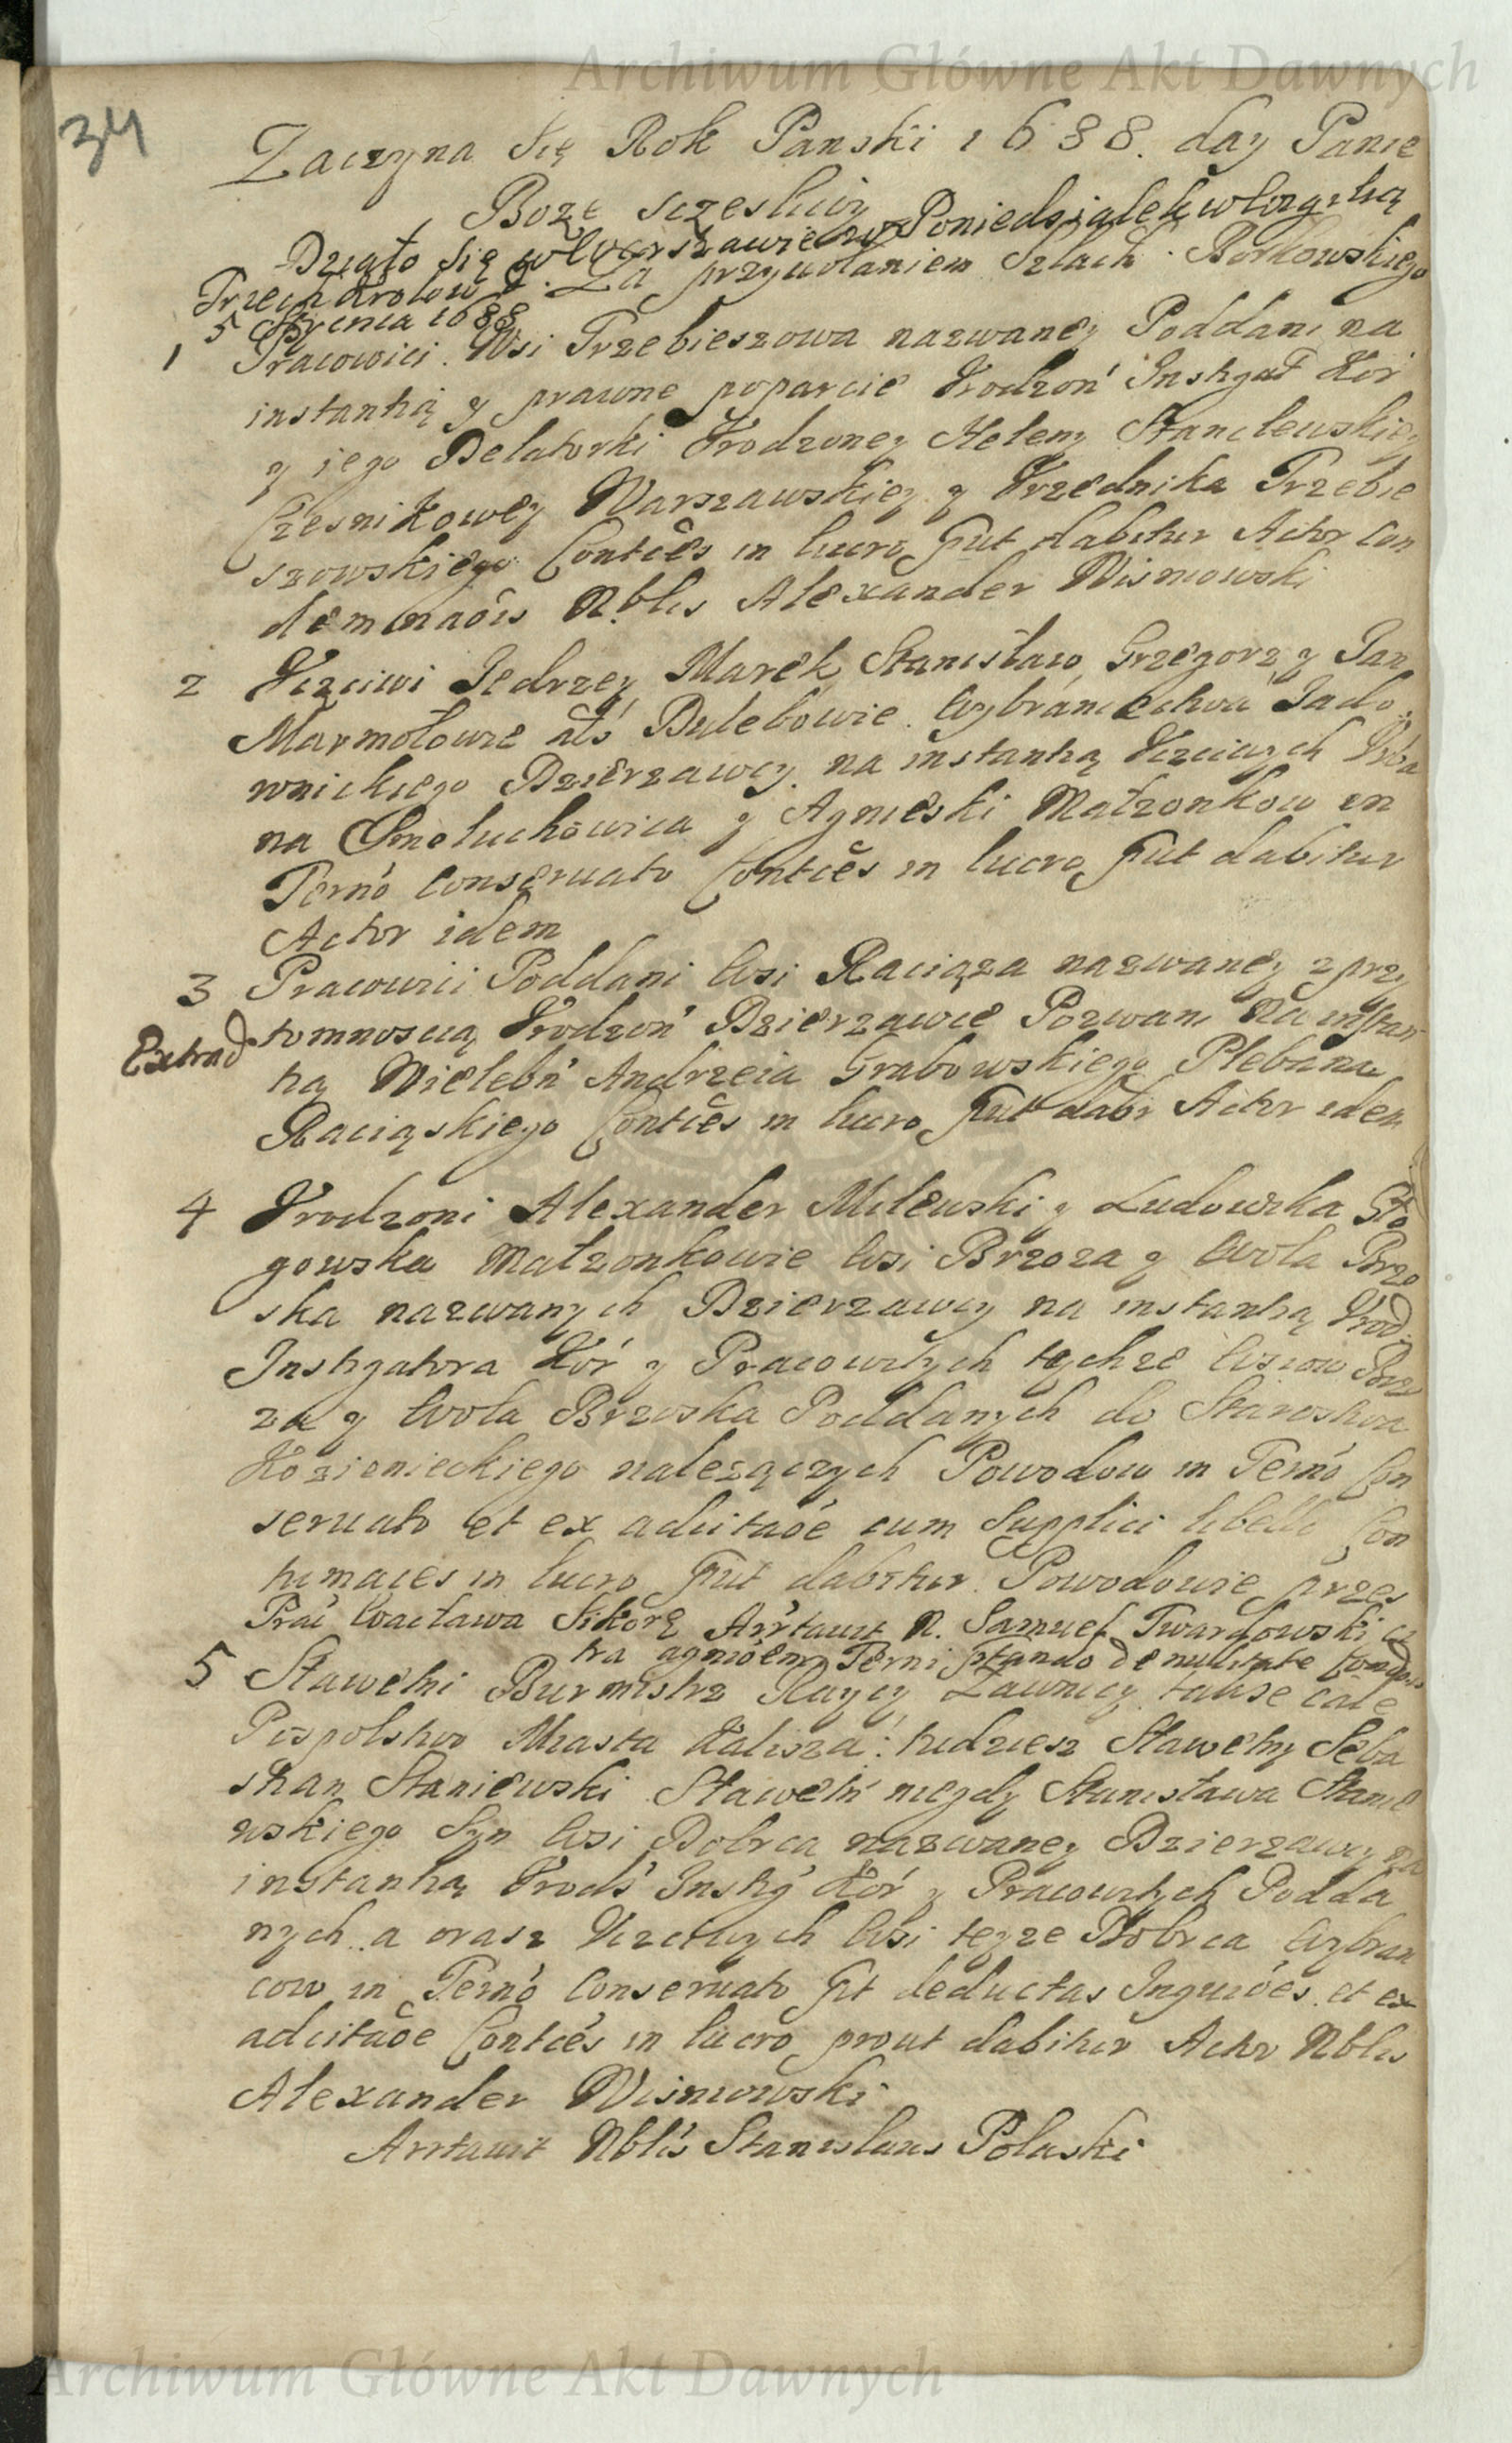 Archiwum Główne Akt Dawnych
34
Zaczyna się Rok Panski 1688. day Panie
Boze sczesliwy
Działo się w Warszawie w Poniedziałek w Wigilią
Trzech Krolow 5. Za przywołaniem Szlach. Borkowskiego
5 Stycznia 1688
1 Pracowici Wsi Trzebieszowa nazwaney Poddani na
instantią y prawne poparcie Vrodzoń Instygat Kor
y iego Delatorki Vrodzoney Heleny Stanclewskiey
Czesnikowey Warszawskiey y Vrzednika Trzebie
szowskiego Contces in lucro Put dabitur Actor Con
demnaōis Nblis Alexander Wisniowski
2 Vczciwi Jedrzey Marek Stanisław Grzegorz y Jan
Marmołowie als Bulebowie Wybraniectwa Jado
wnickiego Dzierzawcy na instantią Vczciwych Vrba
na Smoluchowica y Agnieski Małzonkow in
Termo Conseruato Contces in lucro Put dabitur
Actor idem
3 Pracowici Poddani Wsi Raciąza nazwaney z przy
Extrad tomnoscią Vrodzoń Dzierzawce Pozwani Na instan
tią Wielebń Andrzeia Grabowskiego Plebana
Raciąskiego Contces in lucro Put dabr Actor idem
4 Vrodzoni Alexander Milewski y Ludowika Gło
gowska Małzonkowie Wsi Brzoza y Wola Brzo
ska nazwanych Dzierzawcy na instantią Vrod
Instygatora Kor y Pracowitych tychze Wsiow Brzo
za y Wola Brzoska Poddanych do Starostwa
Kozienieckiego nalezączych Powodow in Termo Con
seruato et ex adcitaōe cum supplici libello Con
tumaces in lucro Put dabitur Powodowie przez
Prac Wacława Sikorę Arrtauit N. Samuel Twardowski cō
tra agnioem Termi stando de nullitate
5 Sławetni Burmistrz Raycy Ławnicy takse całe
Pospolstwo Miasta Kalisza: tudziesz Sławetny Seba
stian Staniewski Sławetń niegdy Stanisława Stanie
wskiego Syn Wsi Dobrca nazwaney Dzierzawcy na
instantią Vrodz Insty Kor y Pracowitych Podda
nych a oraz Vczciwych Wsi teyze Dobrca Wybran
cow in Termo Conseruato Pt deductas Inquiōes et ex
adcitaōe Contces in lucro prout dabitur Actor Nblis
Alexander Wisniowski
Arrtauit Nblis Stanislaus Polaski
Archiwum Główne Akt Dawnych